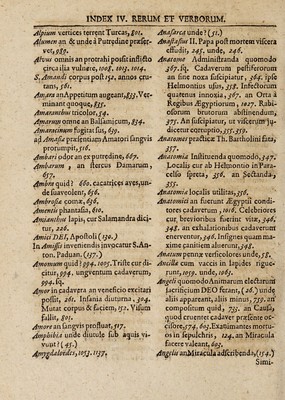 INDEX IV. RERUM ET VERBORUM.
Alpium vertices terrent Turcas, 801.
Alumen an & unde à Putredine præser-
vet, 989.
Alvus omnis an protrahi possit in fistu-
circa ilia vulnere, 1008. 1013. 1014.
S. Amandi corpus post 152. annos cru-
entans, 561.
Amara an Appetitum augeant, 833. Ver-
minant quoque, 835.
Amaranthus tricolor, 54.
Amarum omne an Balsamicum, 834.
Amaracinum fugitat sus, 639.
ad Amasiæ præsentiam Amatori sangvis
prorumpit, 516.
Ambari odor an ex putredine, 667.
Ambarum, an stercus Damarum,
657.
Ambre quid? 660. cacatrices aves, un-
de suaveolent, 656.
Ambrosiæ comæ, 636.
Amentis phantasia, 610.
Amianthus lapis, cur Salamandra dici-
tur, 226.
Amici DEI, Apostoli (130.)
In Amissis inveniendis invocatur S. An-
ton. Paduan. (157.)
Amomum quid? 994. 1005. Triste cur di-
citur, 994. ungventum cadaverum,
994. sq.
Amor in cadavera an veneficio excitari
possit, 261. Insania diuturna, 304.
Mutat corpus & faciem, 152. Visum
fallit, 803.
Amore an sangvis profluat, 517.
Amphibia unde diutule sub aquis vi-
vunt? (43.)
Amygdaloides, 1053. 1137.
Anasarca unde? (51.)
Anastasius II. Papa post mortem viscera
effudit, 245. unde, 246.
Anatomo Administranda quomodo
367. sq. Cadaverum pestiferorum
an sine noxa suscipiatur, 364. ipse
Helmontius usus, 358. Infectorum
quatenus innoxia, 367. an Orta à
Regibus Ægyptiorum, 1027. Rabi-
osorum brutorum abstinendum,
375. An suscipiatur, ut vitiorum ju-
dicetur corruptio, 355. 359.
Anatomicæ practicæ Th. Bartholini fata,
357.
Anatomia Instituenda quomodo, 347.
Localis cur ab Helmontio in Para-
celso spreta, 356. an Sectanda,
355.
Anatomia localis utilitas, 356.
Anatomici an fuerunt Ægyptii condi-
tores cadaverum, 1016. Celebriores
cur brevioribus fuerint vitæ, 346.
348. an exhalationibus cadaverum
enerventur, 346. Insignes quam ma-
xime canitiem aluerunt, 348.
Anatum pennæ versicolores unde, 58.
Ancilla cum vaccis in lapides rigue-
runt, 1059. unde, 1065.
Angeli quomodo Animarum electarum
sacrificium DEO ferant, (26.) unde
aliis appareant, aliis minus, 759. an
compositum quid, 753. an Causa,
quod cruentet cadaver præsente oc-
cisore, 574. 603. Exatimantes mortu-
os in sepulchris, 124. an Miracula
facere valeant, 603.
Angelis an Miracula adscribenda, (154.)
Simi-